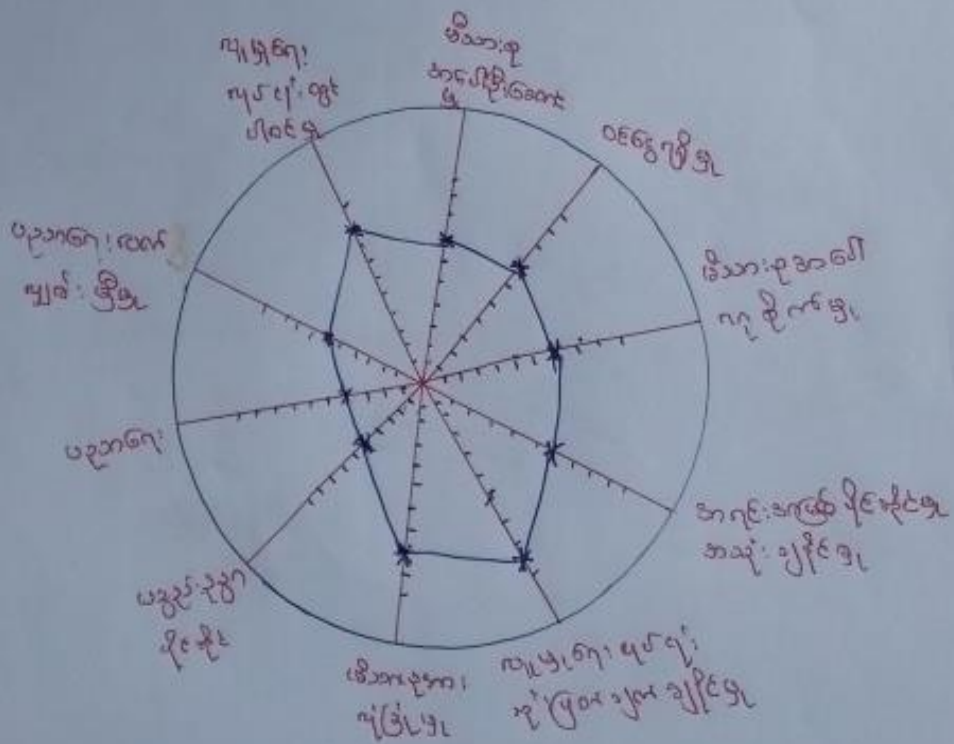 မိသားစု
အပေါ်ဦးဆောင်
မှု
ဝင်ငွေရရှိမှု
မိသားစုအပေါ်
ဂရုစိုက်မှု
အရင်းအမြစ်ပိုင်ဆိုင်မှု
အသုံးချနိုင်မှု
လူမှုရေးလုပ်ငန်း
ဆုံးဖြတ်ချက်ချနိုင်မှု
မိသားစုအား
လုံခြုံမှု
ပစ္စည်းဥစ္စာ
ပိုင်ဆိုင်
ပညာရေး
ပညာရေးလက်
လှမ်းမှီမှု
လူမှုရေး
လုပ်ငန်းတွင်
ပါဝင်မှု